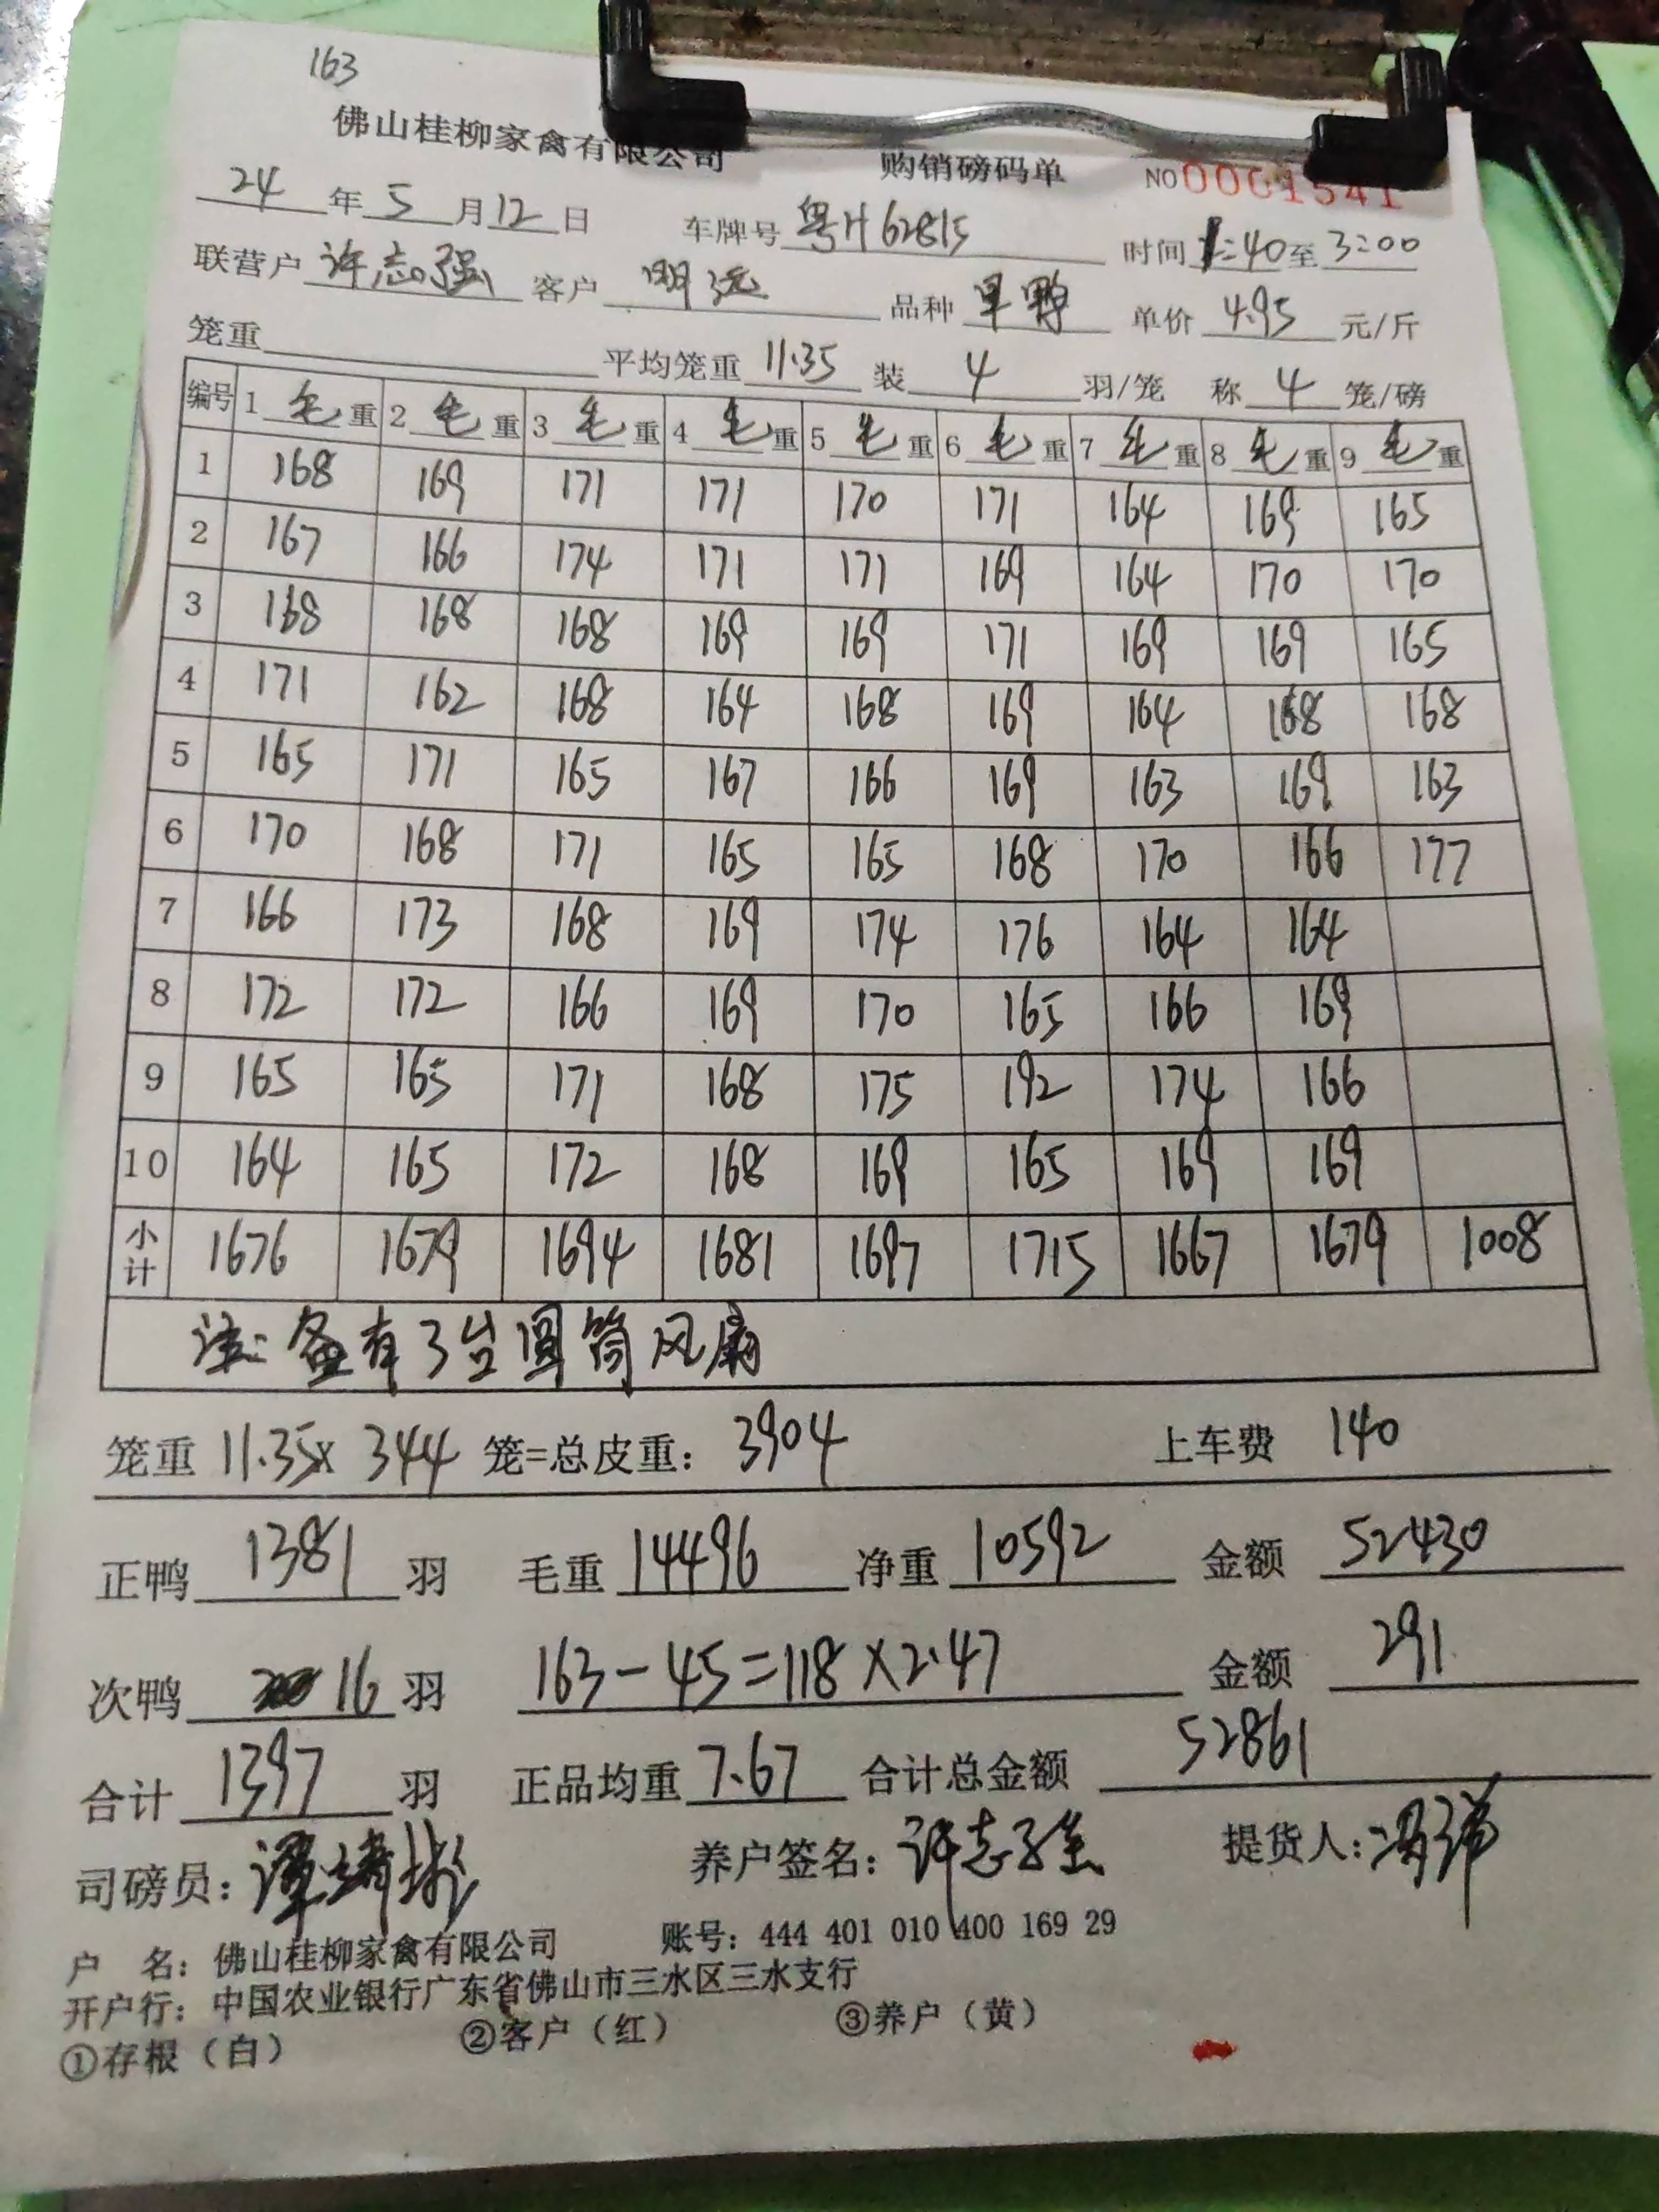 163
佛山桂柳家禽有限公司 购销磅码单 NO 0001541
24 年 5 月 12 日 车牌号 粤H62815 时间 1:40 至 3:00
联营户 许志强 客户 明远 品种 旱鸭 单价 4.95 元/斤
笼重 平均笼重 11.35 装 4 羽/笼 称 4 笼/磅
编号 1 毛重 2 毛重 3 毛重 4 毛重 5 毛重 6 毛重 7 毛重 8 毛重 9 毛重
1 168 169 171 171 170 171 164 169 165
2 167 166 174 171 171 169 164 170 170
3 168 168 168 169 169 171 169 169 165
4 171 162 168 164 168 169 164 168 168
5 165 171 165 167 166 169 163 169 163
6 170 168 171 165 165 168 170 166 177
7 166 173 168 169 174 176 164 164
8 172 172 166 169 170 165 166 169
9 165 165 171 168 175 192 174 166
10 164 165 172 168 169 165 169 169
小计 1676 1679 1694 1681 1697 1715 1667 1679 1008
注:备有3台圆筒风扇
笼重 11.35x 344 笼=总皮重: 3904 上车费 140
正鸭 1381 羽 毛重 14496 净重 10592 金额 52430
次鸭 16 羽 163-45=118×2.47 金额 291
合计 1397 羽 正品均重 7.67 合计总金额 52861
司磅员: 养户签名: 许志强 提货人:
户 名: 佛山桂柳家禽有限公司 账号: 444 401 010 400 169 29
开户行: 中国农业银行广东省佛山市三水区三水支行
①存根(白) ②客户(红) ③养户(黄)